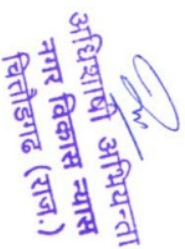 अधिशाषी अभियन्ता
नगर विकास न्यास
चित्तौड़गढ़ (राज.)